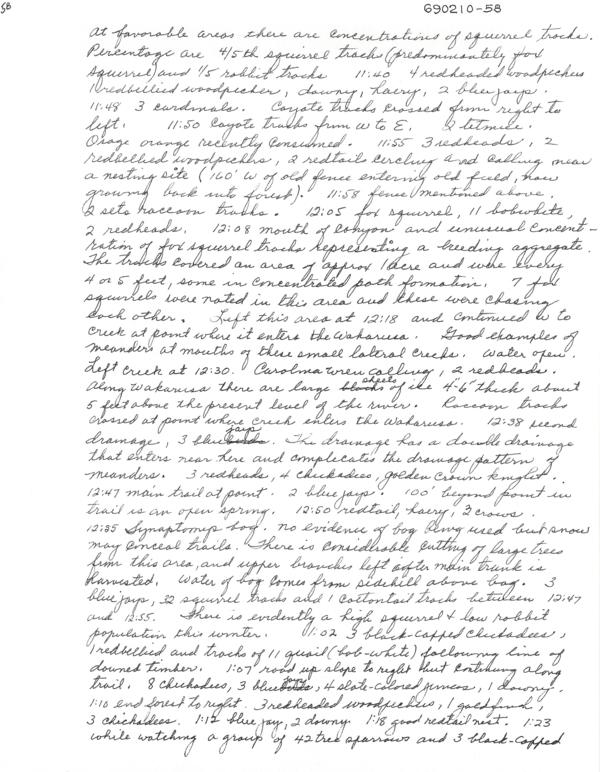 58
690210-58
at favorable areas there are concentrations of squirrel tracks.
Percentage are 4/5th squirrel track (predominately fox
squirrel) and 1/5 rabbit tracks 11:40 4 redheaded woodpeckers
1 redbellied woodpecker, downy, hairy, 2 blue jays.
11:48 3 cardinals. Coyote tracks crossed from right to
left. 11:50 Coyote tracks from W to E. 2 titmice.
Osage orange recently consumed. 11:55 3 redheads, 2
redbellied woodpeckers, 2 redtail circling and calling near
a nesting site (160' W of old fence entering old field, now
growing back into forest). 11:58 fence mentioned above.
2 sets raccoon tracks. 12:05 fox squirrel, 11 bobwhite,
2 redheads. 12:08 mouth of canyon and unusual concent-
ration of fox squirrel tracks representing a breeding aggregate.
The tracks covered an area of approx 1 acre and were every
4 or 5 feet, some in concentrated path formation. 7 fox
squirrels were noted in this area and these were chasing
each other. Left this area at 12:18 and continued W to
creek at point where it enters the Wakarusa. Good examples of
meanders at mouths of these small latral creeks. Water open.
Left creek at 12:30. Carolina wren calling, 2 redheads.
Along Wakarusa there are large sheets of ice 4"-6" thick about
5 feet above the present level of the river. Raccoon tracks
crossed at point where creek enters the Wakarusa. 12:38 second
drainage, 3 blue jays. The drainage has a double drainage
that enters near here and complecates the drainage pattern of
meanders. 3 redheads, 4 chickadees, golden crown kinglet.
12:47 main trail at point. 2 blue jays. 100' beyond point in
trail is an open spring. 12:50 redtail, hairy, 3 crows.
12:55 Synaptomys bog. no evidence of bog being used but snow
may conceal trails. There is considerable cutting of large trees
from this area, and upper branches left after main trunk is
harvested. Water of bog comes from sidehill above bog. 3
blue jays, 32 squirrel tracks and 1 cottontail tracks between 12:47
and 12:55. There is evidently a high squirrel & low rabbit
population this winter. 1:02 3 black-capped chickadees,
1 redbellied and tracks of 11 quail (bob-white) following line of
downed timber. 1:07 road up slope to right but continuing along
trail. 8 chickadees, 3 blue jays, 4 slate-colored juncos, 1 downy.
1:10 end forest to right. 3 redheaded woodpeckers, 1 goldfinch,
3 chickadees. 1:12 blue jay, 2 downy. 1:18 good redtail nest. 1:23
while watching a group of 42 tree sparrows and 3 black-capped